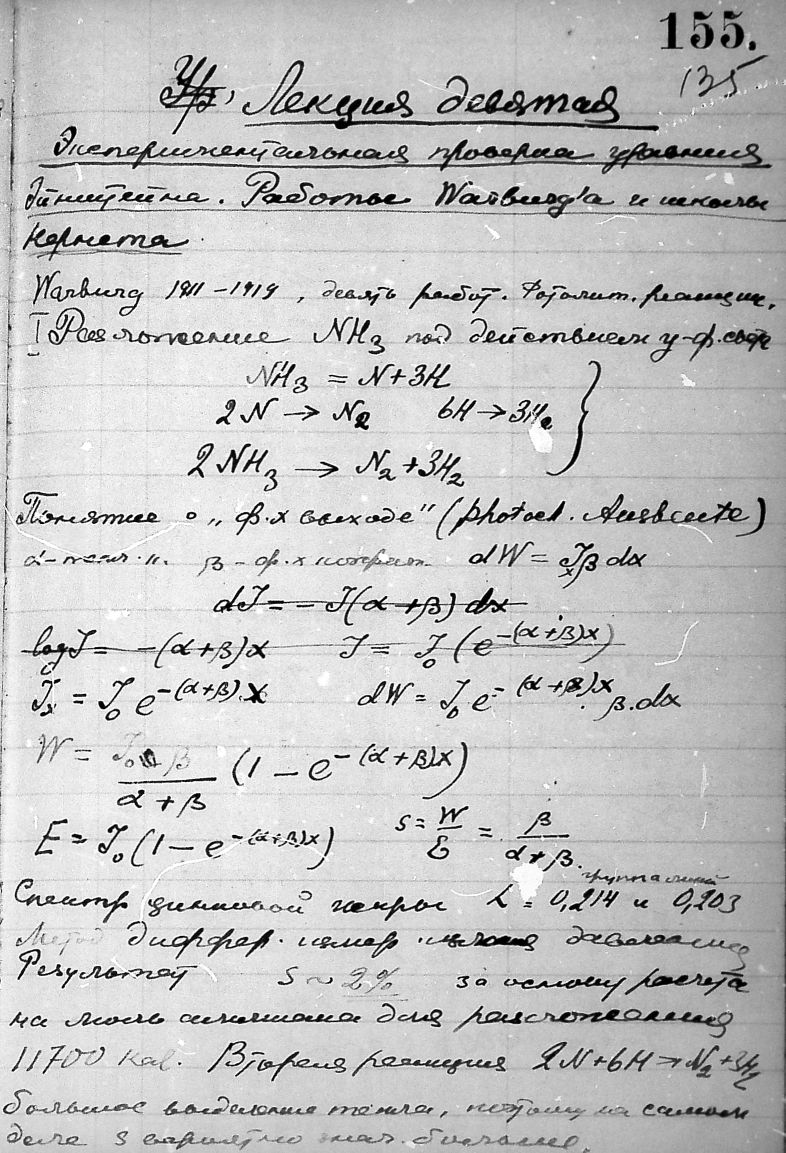 155.
135
Лекция девятая
Экспериментальная проверка уравнения
Эйнштейна. Работы Warburg'a и школы
Нернста
Warburg 1911-1919, девять работ. Фотолит. реакции.
I Разложение NH3 под действием у-ф. света
NH3 = N+3H
2N → N2 6H → 3H2
2NH3 → N2+3H2
Понятие о „ф.х выходе" (photoch. Ausbeute)
α- β - ф.х dW = Jxβ dx
dJ = - J(α+β) dx
log J = -(α+β)x J = J0 (e-(α+β)x)
Jx = J0 e-(α+β).x dW = J0 e-(α+β)x . β.dx
W = J0 β / α+β (1 - e-(α+β)x)
E = J0 (1 - e-(α+β)x) s = W/E = β/α+β.
группа линий
Спектр цинковой искры L = 0,214 и 0,203
Метод диффер. измер. давления
Результат s ~ 2% за основу расчета
на моль аммиака для разложения
11700 кал. Вторая реакция 2N+6H→N2+3H2
большое выделение тепла, поэтому на самом
деле s вероятно знач. больше.